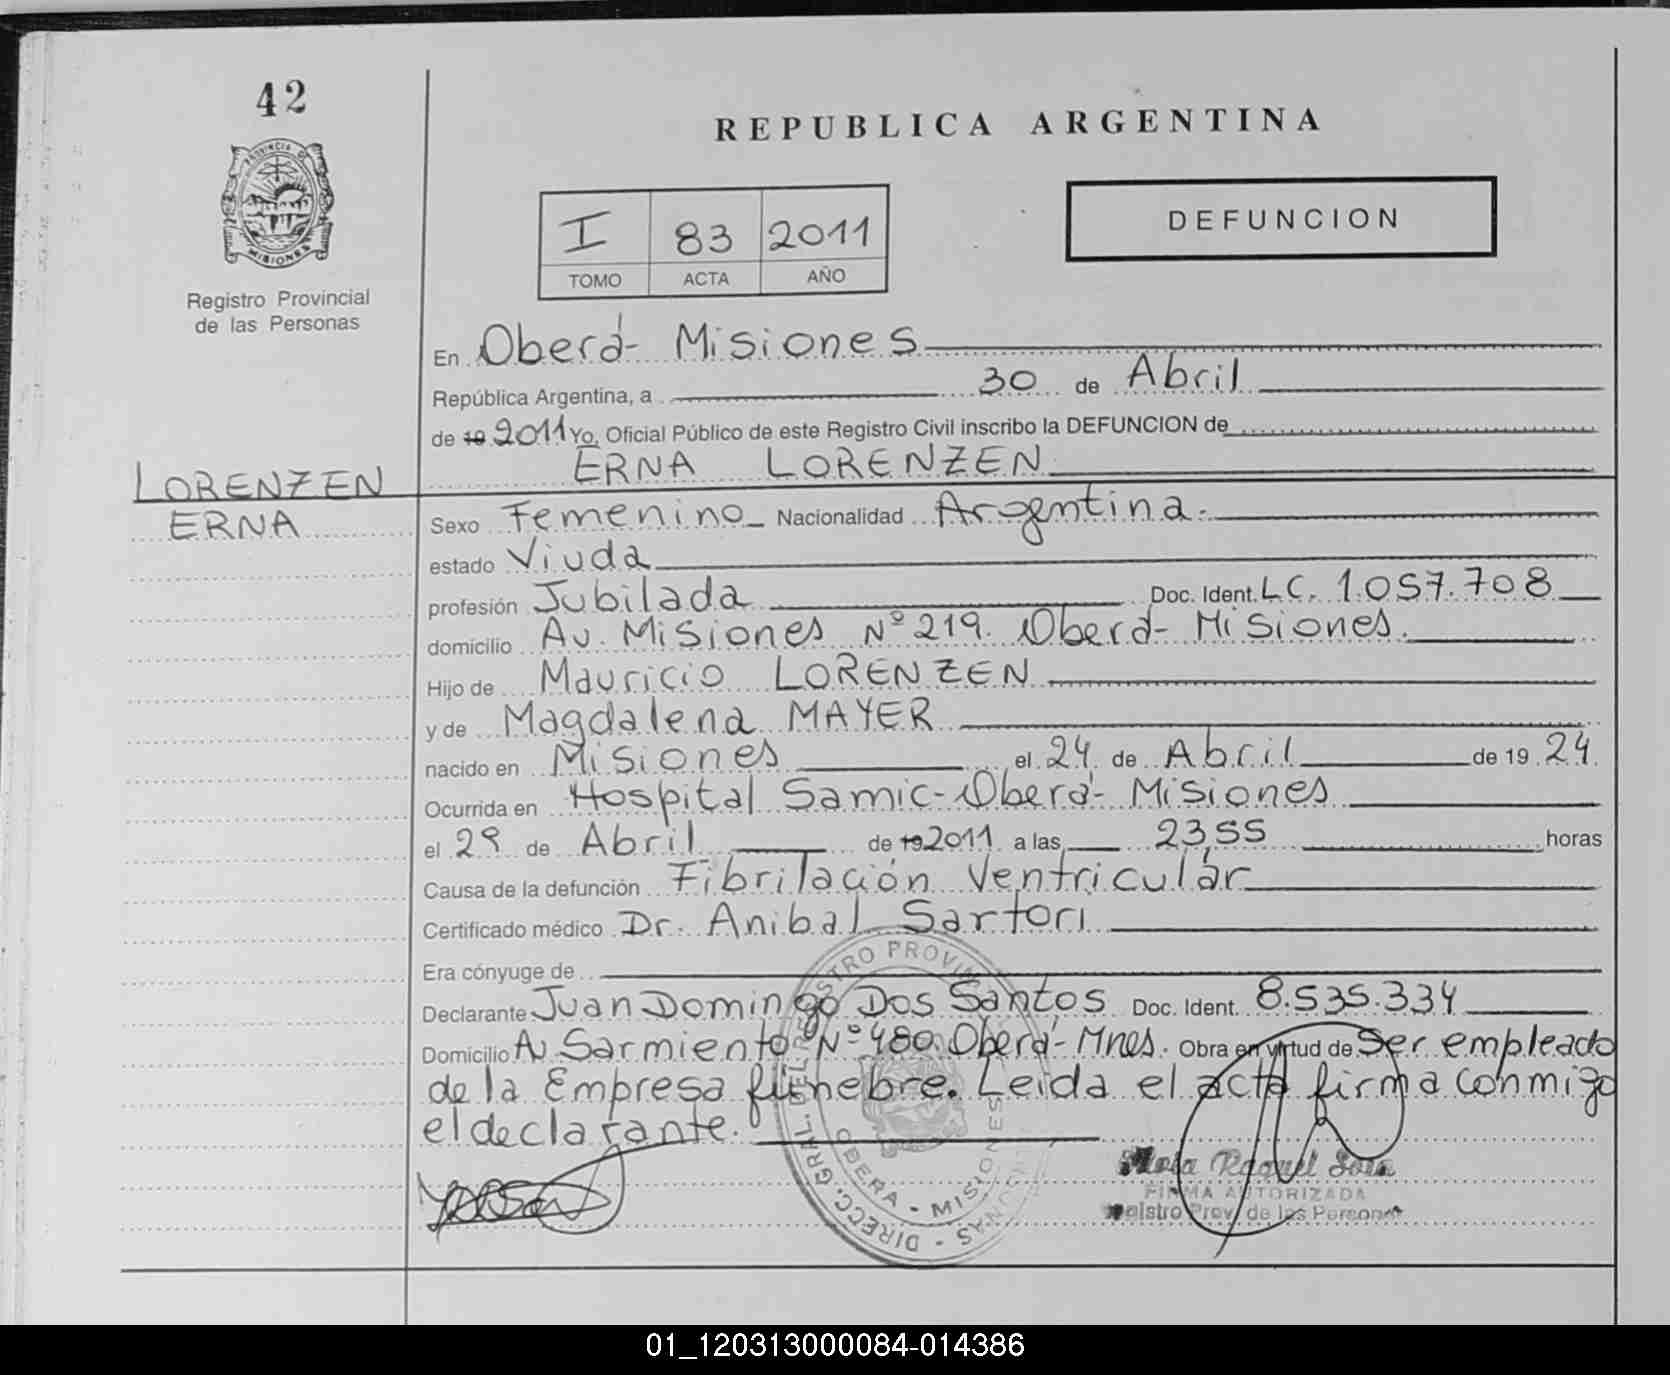 42
REPUBLICA ARGENTINA
PROVINCIA DE
MISIONES
Registro Provincial
de las Personas
I 83 2011
TOMO ACTA AÑO
DEFUNCION
En Oberá- Misiones
República Argentina, a 30 de Abril
de 19 2011 Yo, Oficial Público de este Registro Civil inscribo la DEFUNCION de
ERNA LORENZEN
LORENZEN
ERNA
Sexo Femenino Nacionalidad Argentina.
estado Viuda
profesión Jubilada Doc. Ident. L.C. 1.057.708
domicilio Av. Misiones Nº 219. Oberá- Misiones.
Hijo de Mauricio LORENZEN
y de Magdalena MAYER
nacido en Misiones el 24 de Abril de 19 24
Ocurrida en Hospital Samic- Oberá- Misiones
el 29 de Abril de 19 2011 a las 23,55 horas
Causa de la defunción Fibrilación Ventricular
Certificado médico Dr. Anibal Sartori
Era cónyuge de
Declarante Juan Domingo Dos Santos Doc. Ident. 8.535.334
Domicilio Av Sarmiento Nº 480. Oberá- Mnes. Obra en virtud de Ser empleado
de la Empresa fúnebre. Leida el acta firma conmigo
el declarante.
DIRECC. GRAL. DEL REGISTRO PROVINCIAL
OBERA - MISIONES
Raquel
FIRMA AUTORIZADA
Registro Prov. de las Personas
01_120313000084-014386